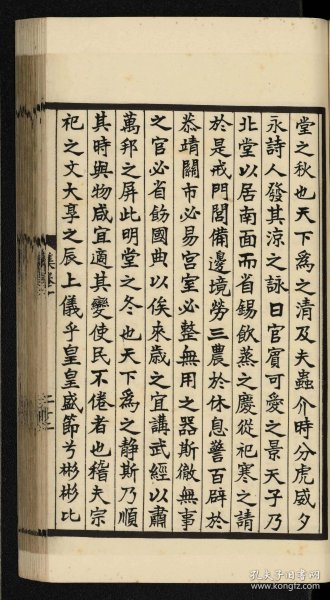 堂之秋也天下為之清及夫蟲介時分虎威夕
永詩人發其涼之詠日官賓可愛之景天子乃
北堂以居南面而省錫飲蒸之慶從祀寒之請
於是戒門閭備邊境勞三農於休息警百辟於
恭靖關市必易宮室必整無用之器斯徹無事
之官必省飭國典以俟來歲之宜講武經以肅
萬邦之屏此明堂之冬也天下為之靜斯乃順
其時與物咸宜適其變使民不倦者也稽夫宗
祀之文大享之辰上儀乎皇皇盛節兮彬彬比
集卷一
二十二
孔夫子旧书网